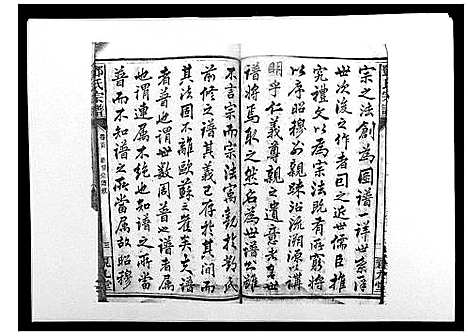 宗之法創為圖譜一詳世系
世次後之作者因之近世儒臣推
究禮文以為宗法既有所窮將
以序昭穆別親疎沿流溯源以
明乎仁義尊親之遺意者舍世
譜將焉取之然名為世譜公雖
不言宗而宗法寓勤於鄭氏
前修之義已存於其間而
其法固不離歐蘇之舊矣夫譜
普也世數周普也譜者屬
也謂連屬不絕也知譜之所當
普而不知譜之所當屬故昭穆
鄭氏宗譜
卷首
三
堂